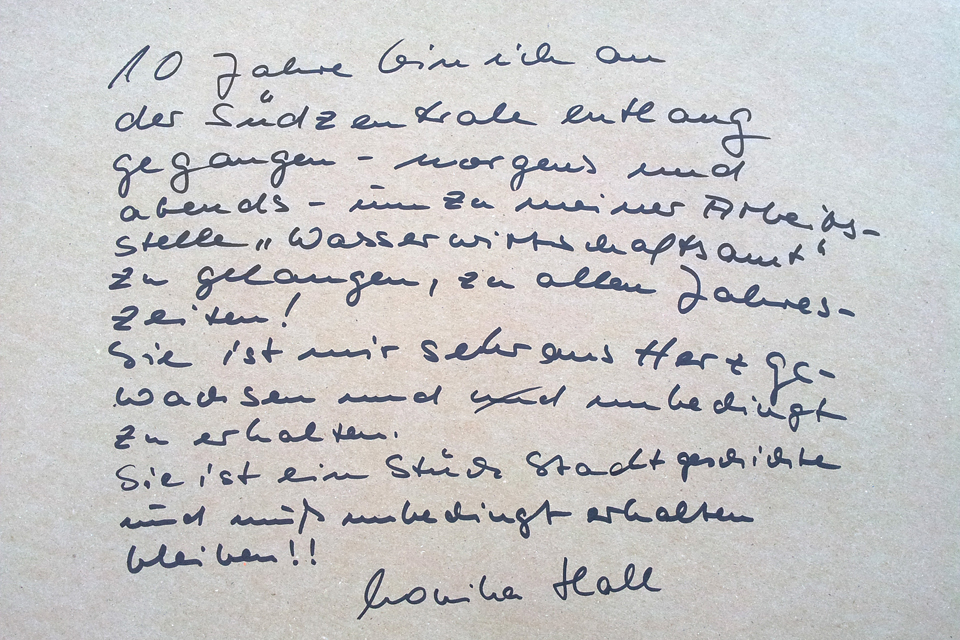 10 Jahre bin ich an
der Südzentrale entlang
gegangen - morgens und
abends - um zu meiner Arbeits-
stelle „Wasserwirtschaftsamt"
zu gelangen, zu allen Jahres-
zeiten!
Sie ist mir sehr ans Herz ge-
wachsen und und unbedingt
zu erhalten.
Sie ist ein Stück Stadtgeschichte
und muß unbedingt erhalten
bleiben!!
Monika Hall